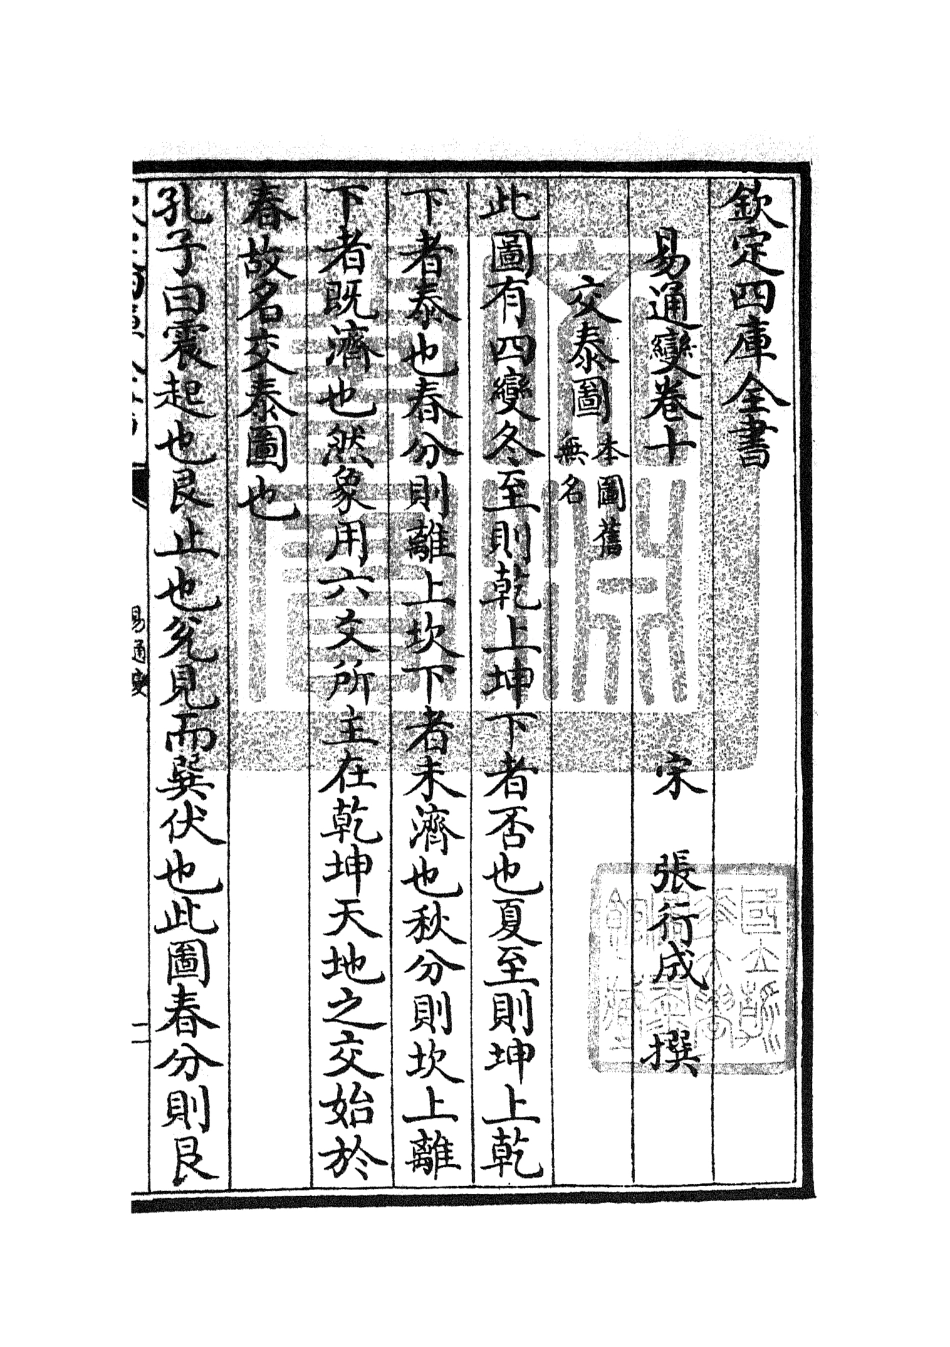 欽定四庫全書
易通變卷十
宋 張行成 撰
交泰圖
本圖舊
無名
此圖有四變冬至則乾上坤下者否也夏至則坤上乾
下者泰也春分則離上坎下者未濟也秋分則坎上離
下者既濟也然象用六爻所主在乾坤天地之交始於
春故名交泰圖也
孔子曰震起也艮止也兌見而巽伏也此圖春分則艮
易通變